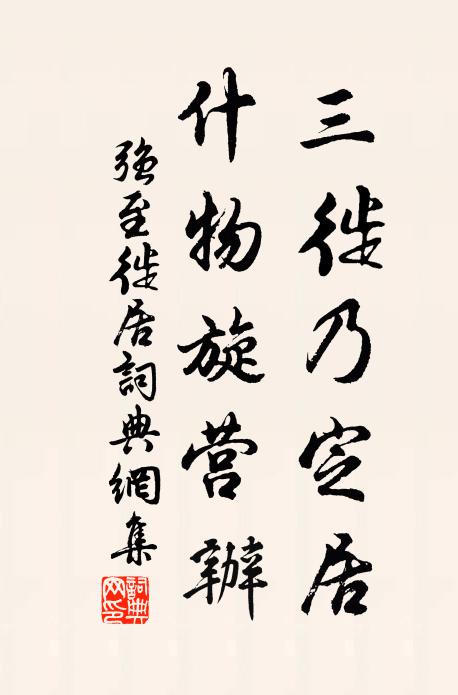 三徙乃定居
什物旋营辦
強至徙居詞典網集
詞典网印